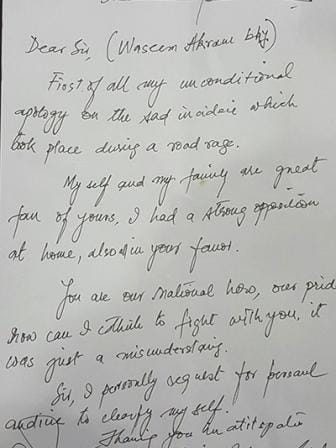 Dear Sir, (Waseem Akram bhi)
First of all my unconditional
apology on the sad incident which
took place during a road rage.
My self and my family are great
fan of yours, I had a strong opposition
at home, also in your favor.
You are our National hero, our prid
how can I think to fight with you, it
was just a misunderstaing.
Sir, I personly request for
to clearfy my self.
Thanking you